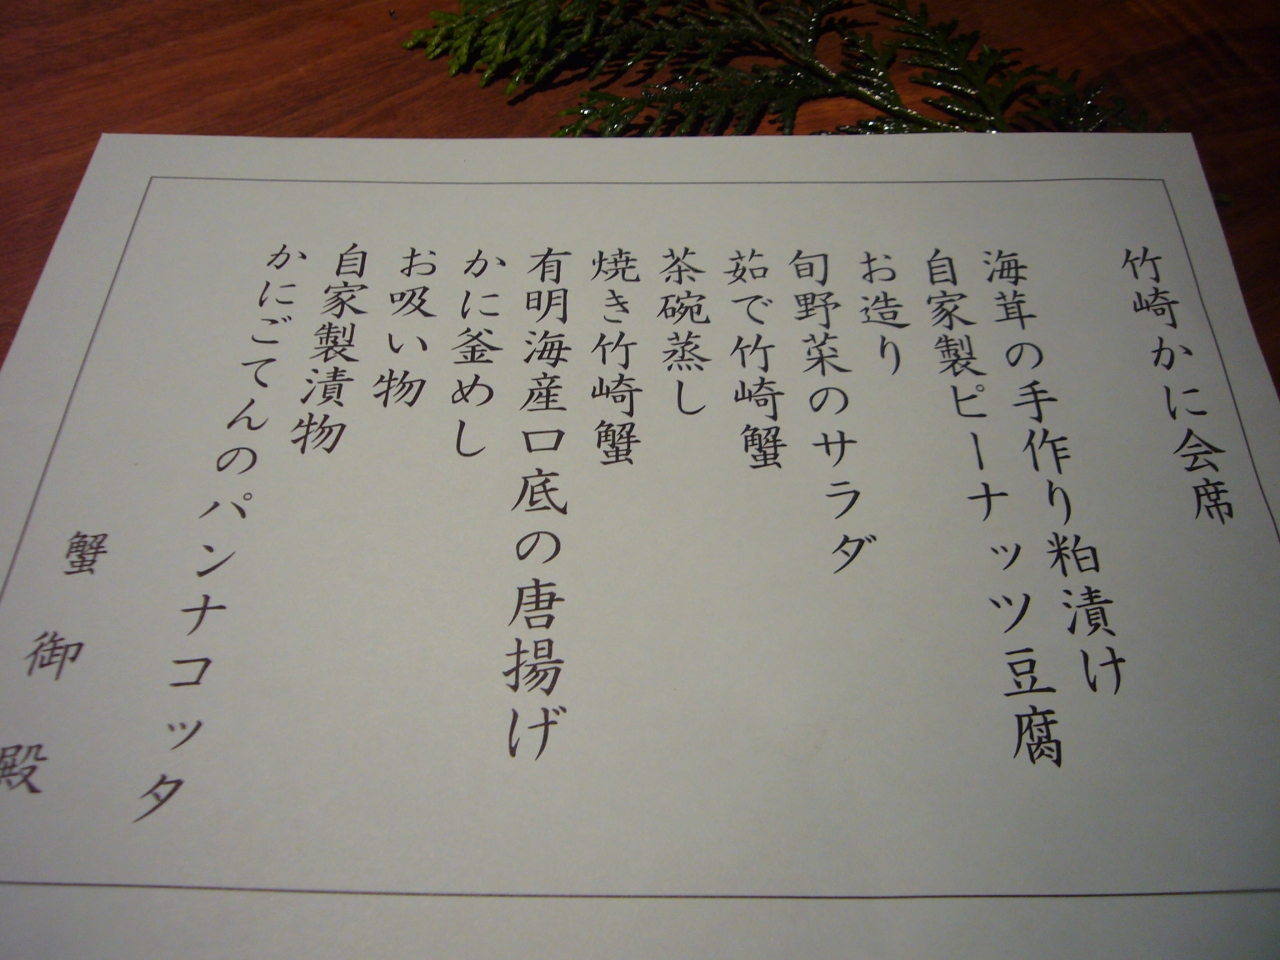 竹崎かに会席
海茸の手作り粕漬け
自家製ピーナッツ豆腐
お造り
旬野菜のサラダ
茹で竹崎蟹
茶碗蒸し
焼き竹崎蟹
有明海産口底の唐揚げ
かに釜めし
お吸い物
自家製漬物
かにごてんのパンナコッタ
蟹御殿